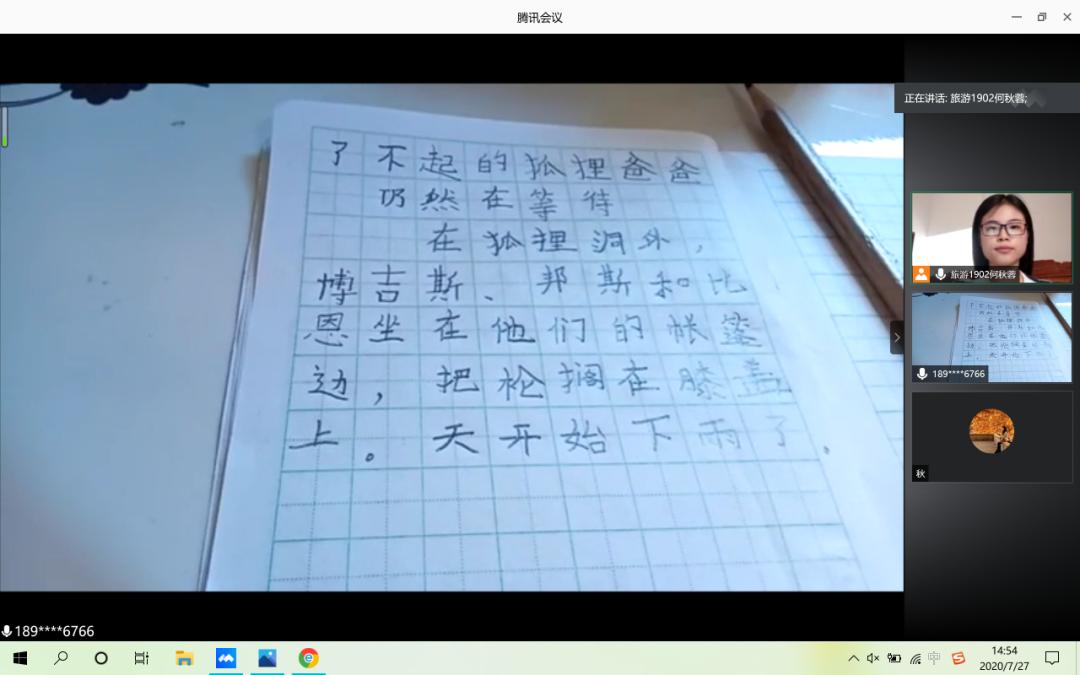 腾讯会议
正在讲话: 旅游1902何秋蓉;
了不起的狐狸爸爸
仍然在等待
在狐狸洞外，
博吉斯、邦斯和比
恩坐在他们的帐篷
边，把枪搁在膝盖
上。天开始下雨了。
旅游1902何秋蓉
189****6766
秋
189****6766
中
14:54
2020/7/27